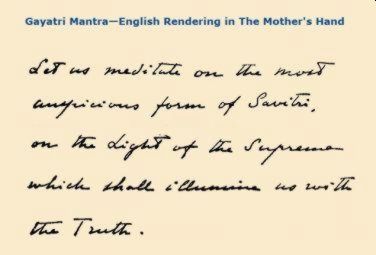 Gayatri Mantra—English Rendering in The Mother's Hand
Let us meditate on the most
auspicious form of Savitri,
on the Light of the Supreme
which shall illumine us with
the Truth.